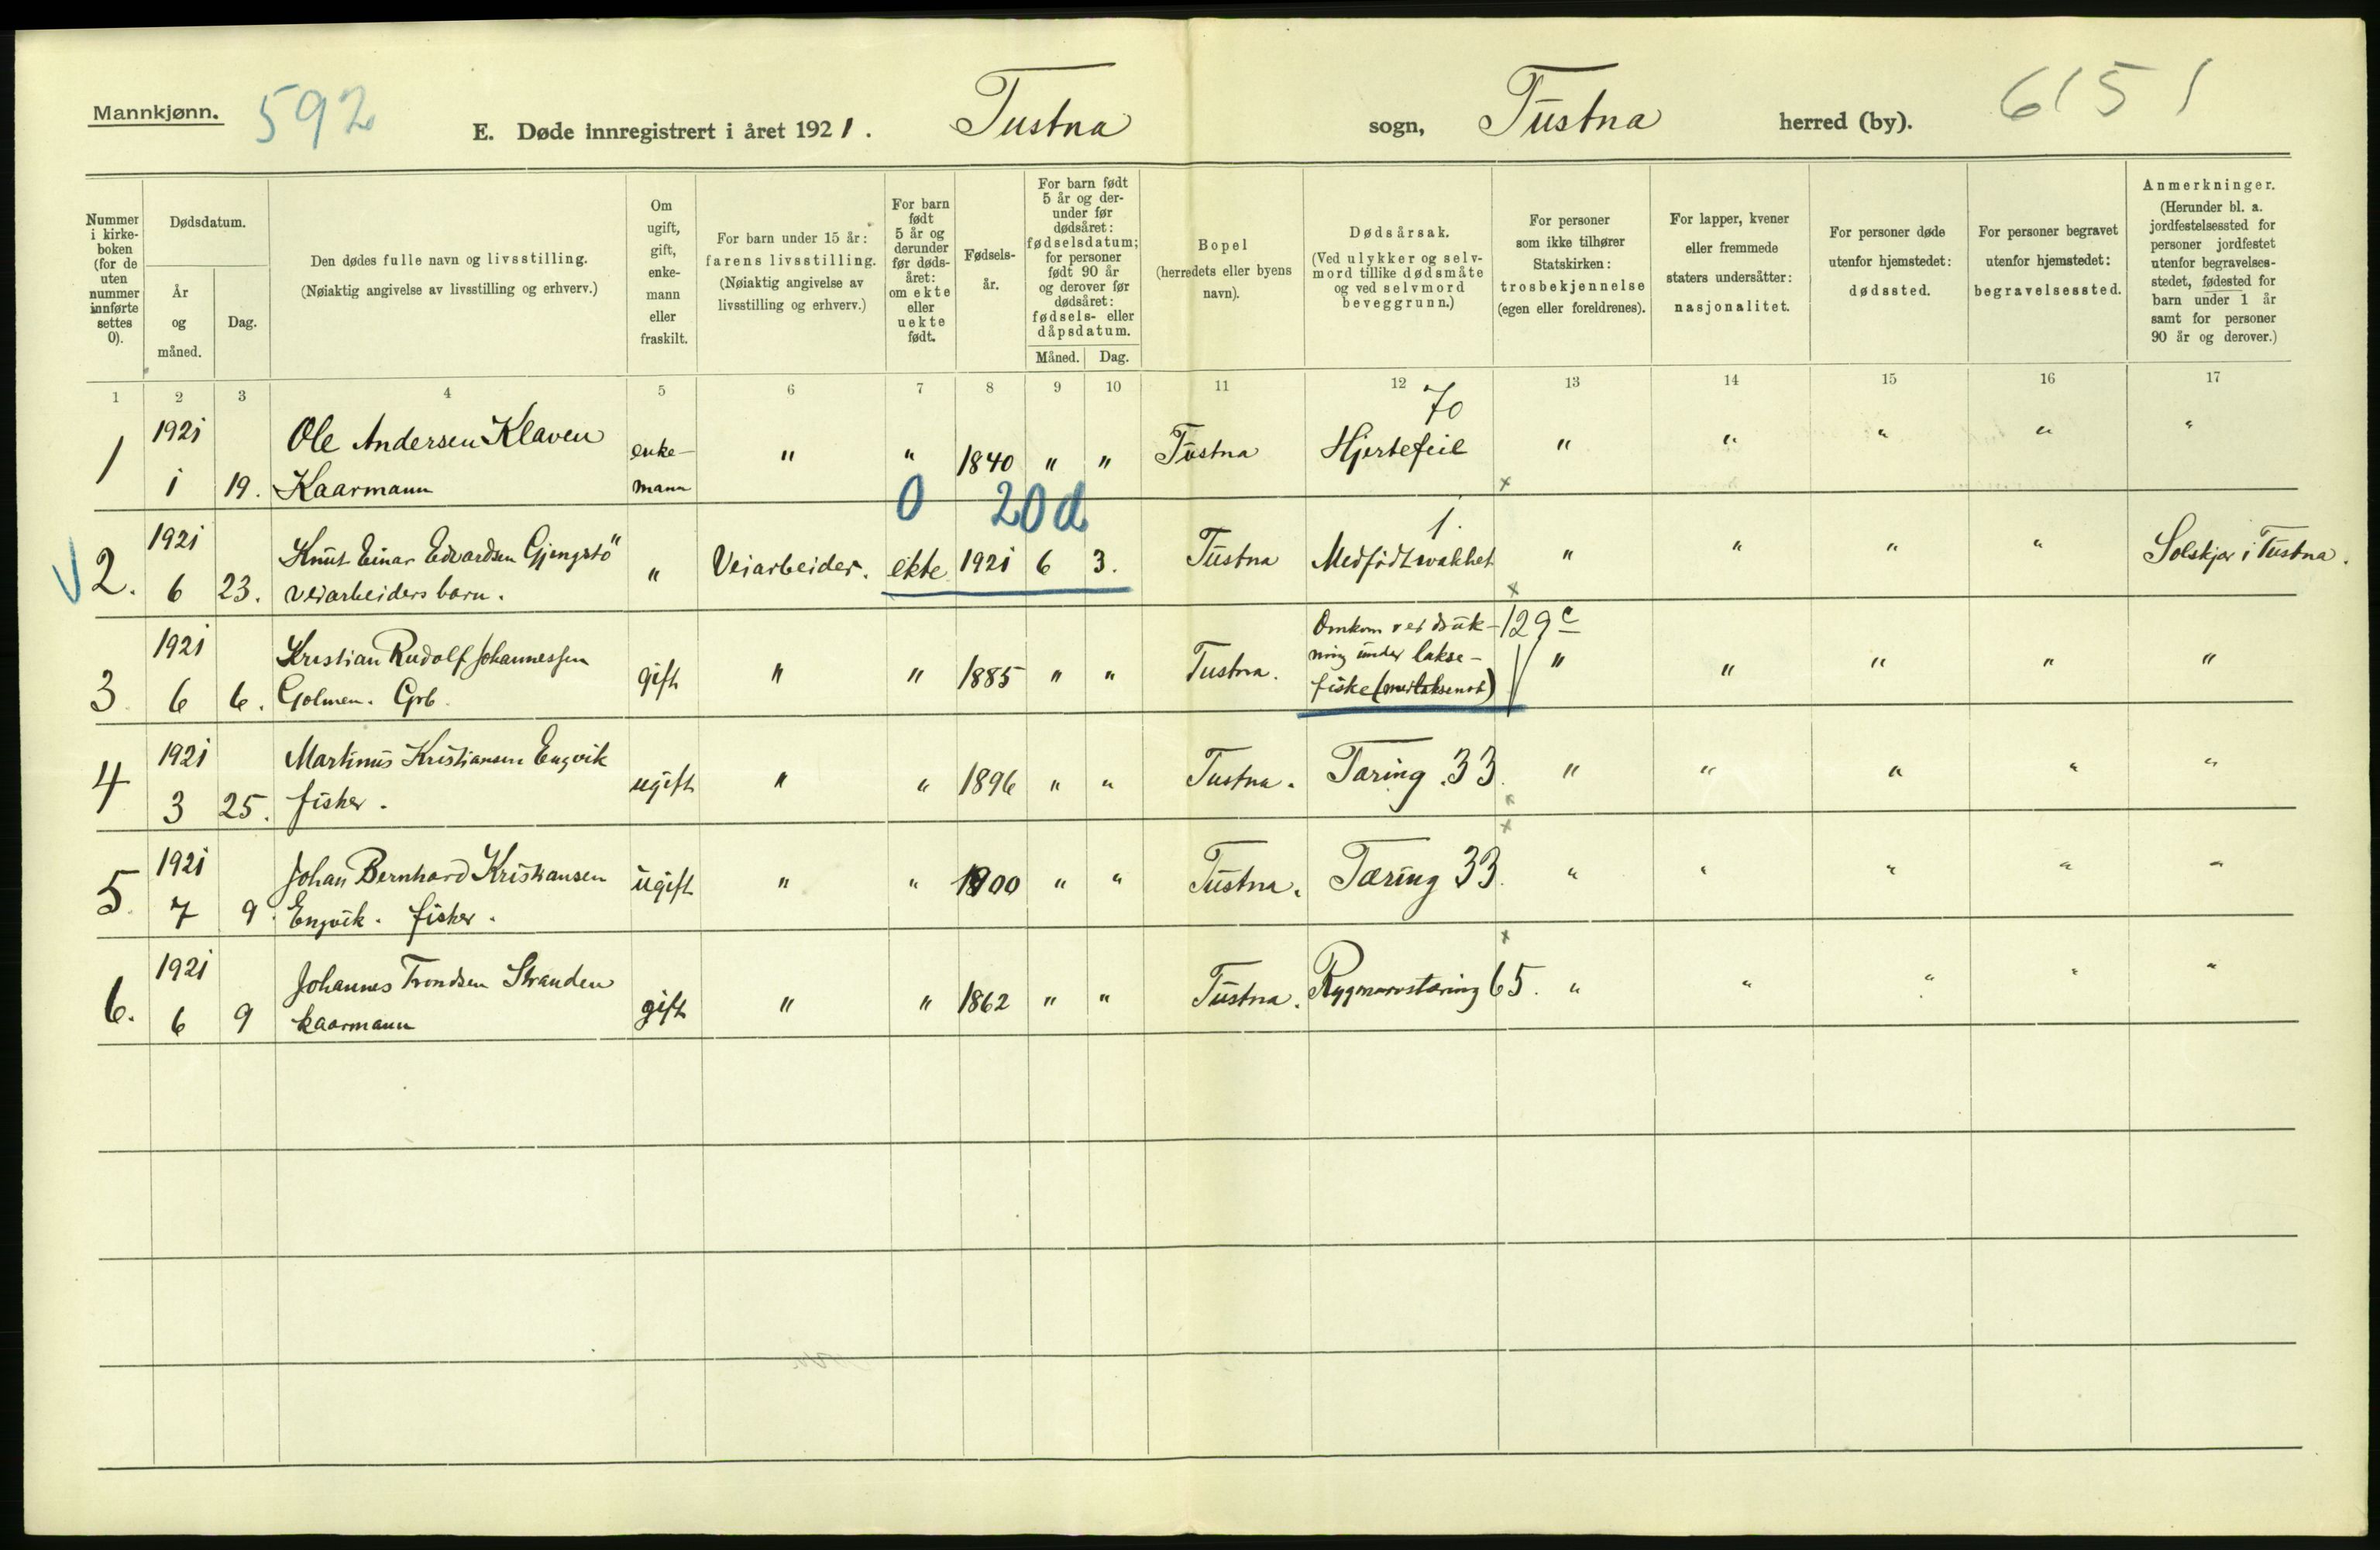 Mannkjønn.
592
E. Døde innregistrert i året 1921. Tustna sogn, Tustna herred (by).
6151
Nummer i kirke-boken (for de uten nummer innførte settes 0).
Dødsdatum.
År og måned.
Dag.
Den dødes fulle navn og livsstilling.
(Nøiaktig angivelse av livsstilling og erhverv.)
Om ugift, gift, enke-mann eller fraskilt.
For barn under 15 år:
farens livsstilling.
(Nøiaktig angivelse av livsstilling og erhverv.)
For barn født 5 år og derunder før døds-året: om ekte eller uekte født.
Fødsels-år.
For barn født 5 år og der-under før dødsåret: fødselsdatum; for personer født 90 år og derover før dødsåret: fødsels- eller dåpsdatum.
Måned. Dag.
Bopel
(herredets eller byens navn).
Dødsårsak.
(Ved ulykker og selv-mord tillike dødsmåte og ved selvmord beveggrunn.)
For personer som ikke tilhører Statskirken:
trosbekjennelse
(egen eller foreldrenes).
For lapper, kvener eller fremmede staters undersåtter:
nasjonalitet.
For personer døde utenfor hjemstedet:
dødssted.
For personer begravet utenfor hjemstedet:
begravelsessted.
Anmerkninger.
(Herunder bl. a. jordfestelsessted for personer jordfestet utenfor begravelses-stedet, fødested for barn under 1 år samt for personer 90 år og derover.)
1 2 3 4 5 6 7 8 9 10 11 12 13 14 15 16 17
70
1 1921 Ole Andersen Klaven enke- " " 1840 " " Tustna Hjertefeil " " " " "
1 19. Kaarmann mann
0 20d
1.
2. 1921 Knut Einar Edvardsen Gjengstø " Veiarbeider. ekte 1921 6 3. Tustna Medfødt svakhet " " " " Solskjær i Tustna.
6 23. veiarbeiders barn.
3. 1921 Kristian Rudolf Johannessen gift " " 1885 " " Tustna. Omkom ved druk- 129 c
ning under lakse- " " " " "
6 6. Golmen. Grb. fiske (med laksenot)
4 1921 Martinus Kristiansen Engvik ugift " " 1896 " " Tustna. Tæring. 33. " " " " "
3 25. fisker.
5. 1921 Johan Bernhard Kristiansen ugift " " 1900 " " Tustna. Tæring 33. " " " " "
7 9. Engvik. fisker.
6. 1921 Johannes Trondsen Stranden gift " " 1862 " " Tustna. Rygmarvstæring 65. " " " " "
6 9 kaarmann